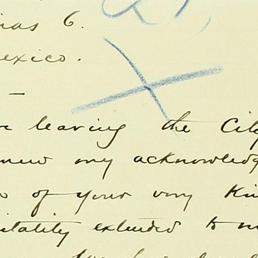 6.
exico.
leaving the City
new my acknowledg
of your very kin
itality extended to m